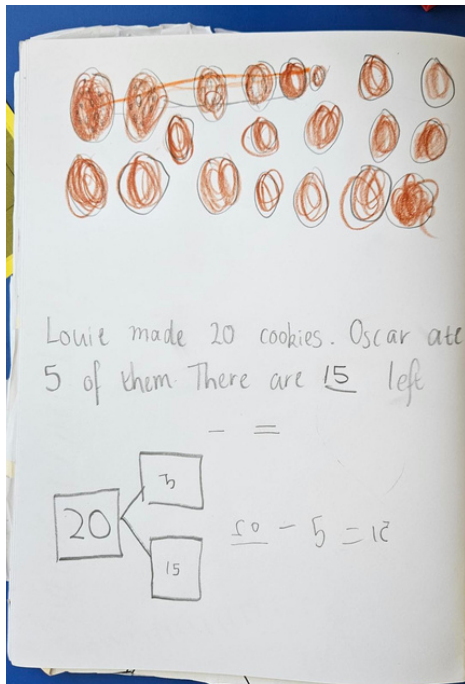 Louie made 20 cookies. Oscar ate
5 of them. There are 15 left
- =
5
20
15
20 - 5 = 15